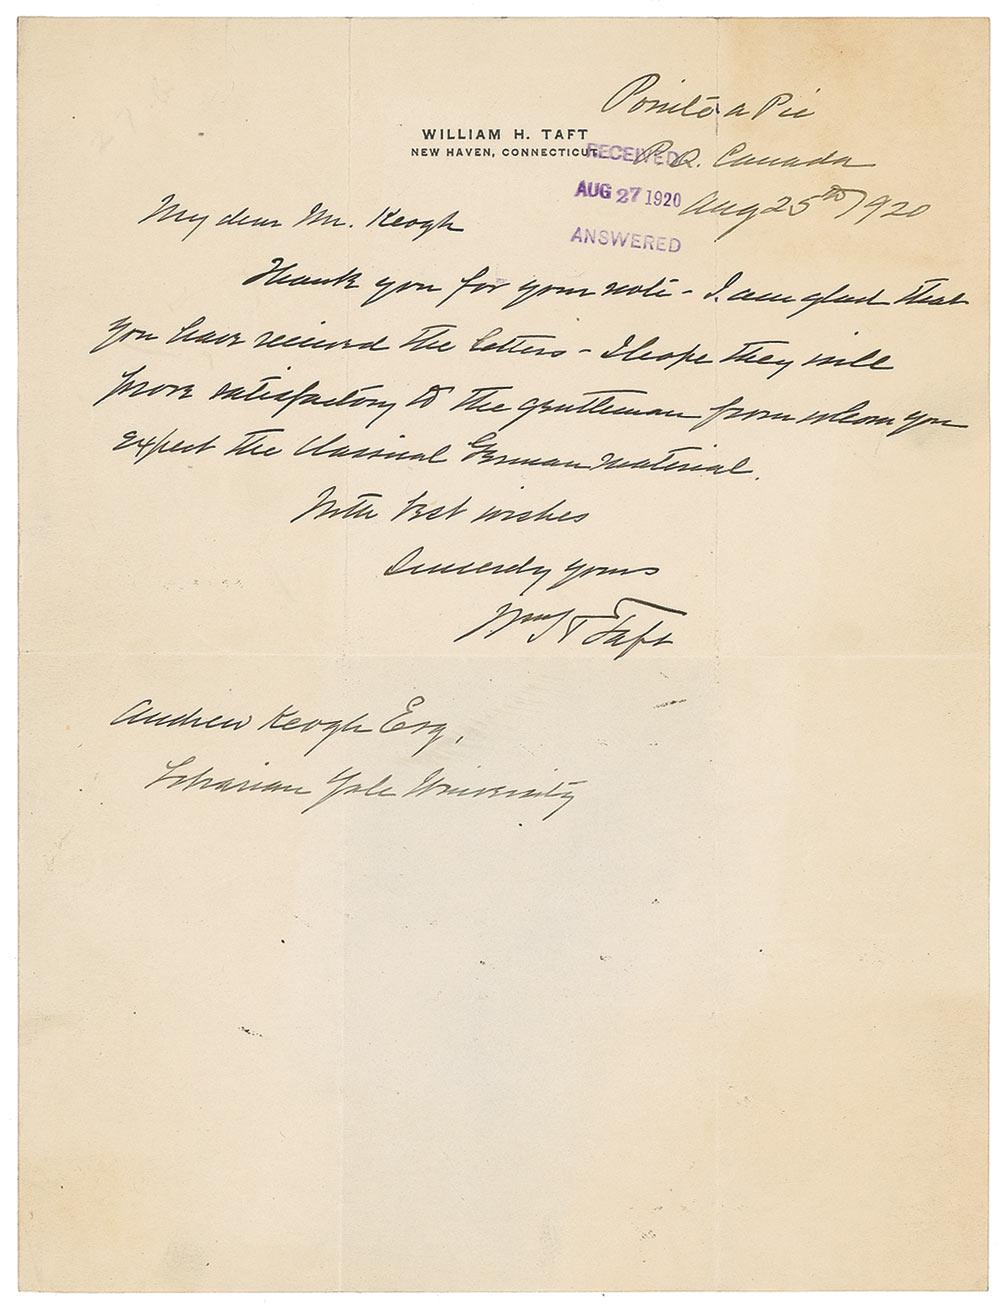 Pointe a Pic
WILLIAM H. TAFT
NEW HAVEN, CONNECTICUT.
P.Q. Canada
RECEIVED
AUG 27 1920
ANSWERED
Aug 25th 1920
My dear Mr. Keogh
Thank you for your note - I am glad that
you have received the letters - I hope they will
prove satisfactory to the gentleman from whom you
expect the classical German material.
With best wishes
Sincerely yours
Wm H Taft
Andrew Keogh Esq,
Librarian Yale University